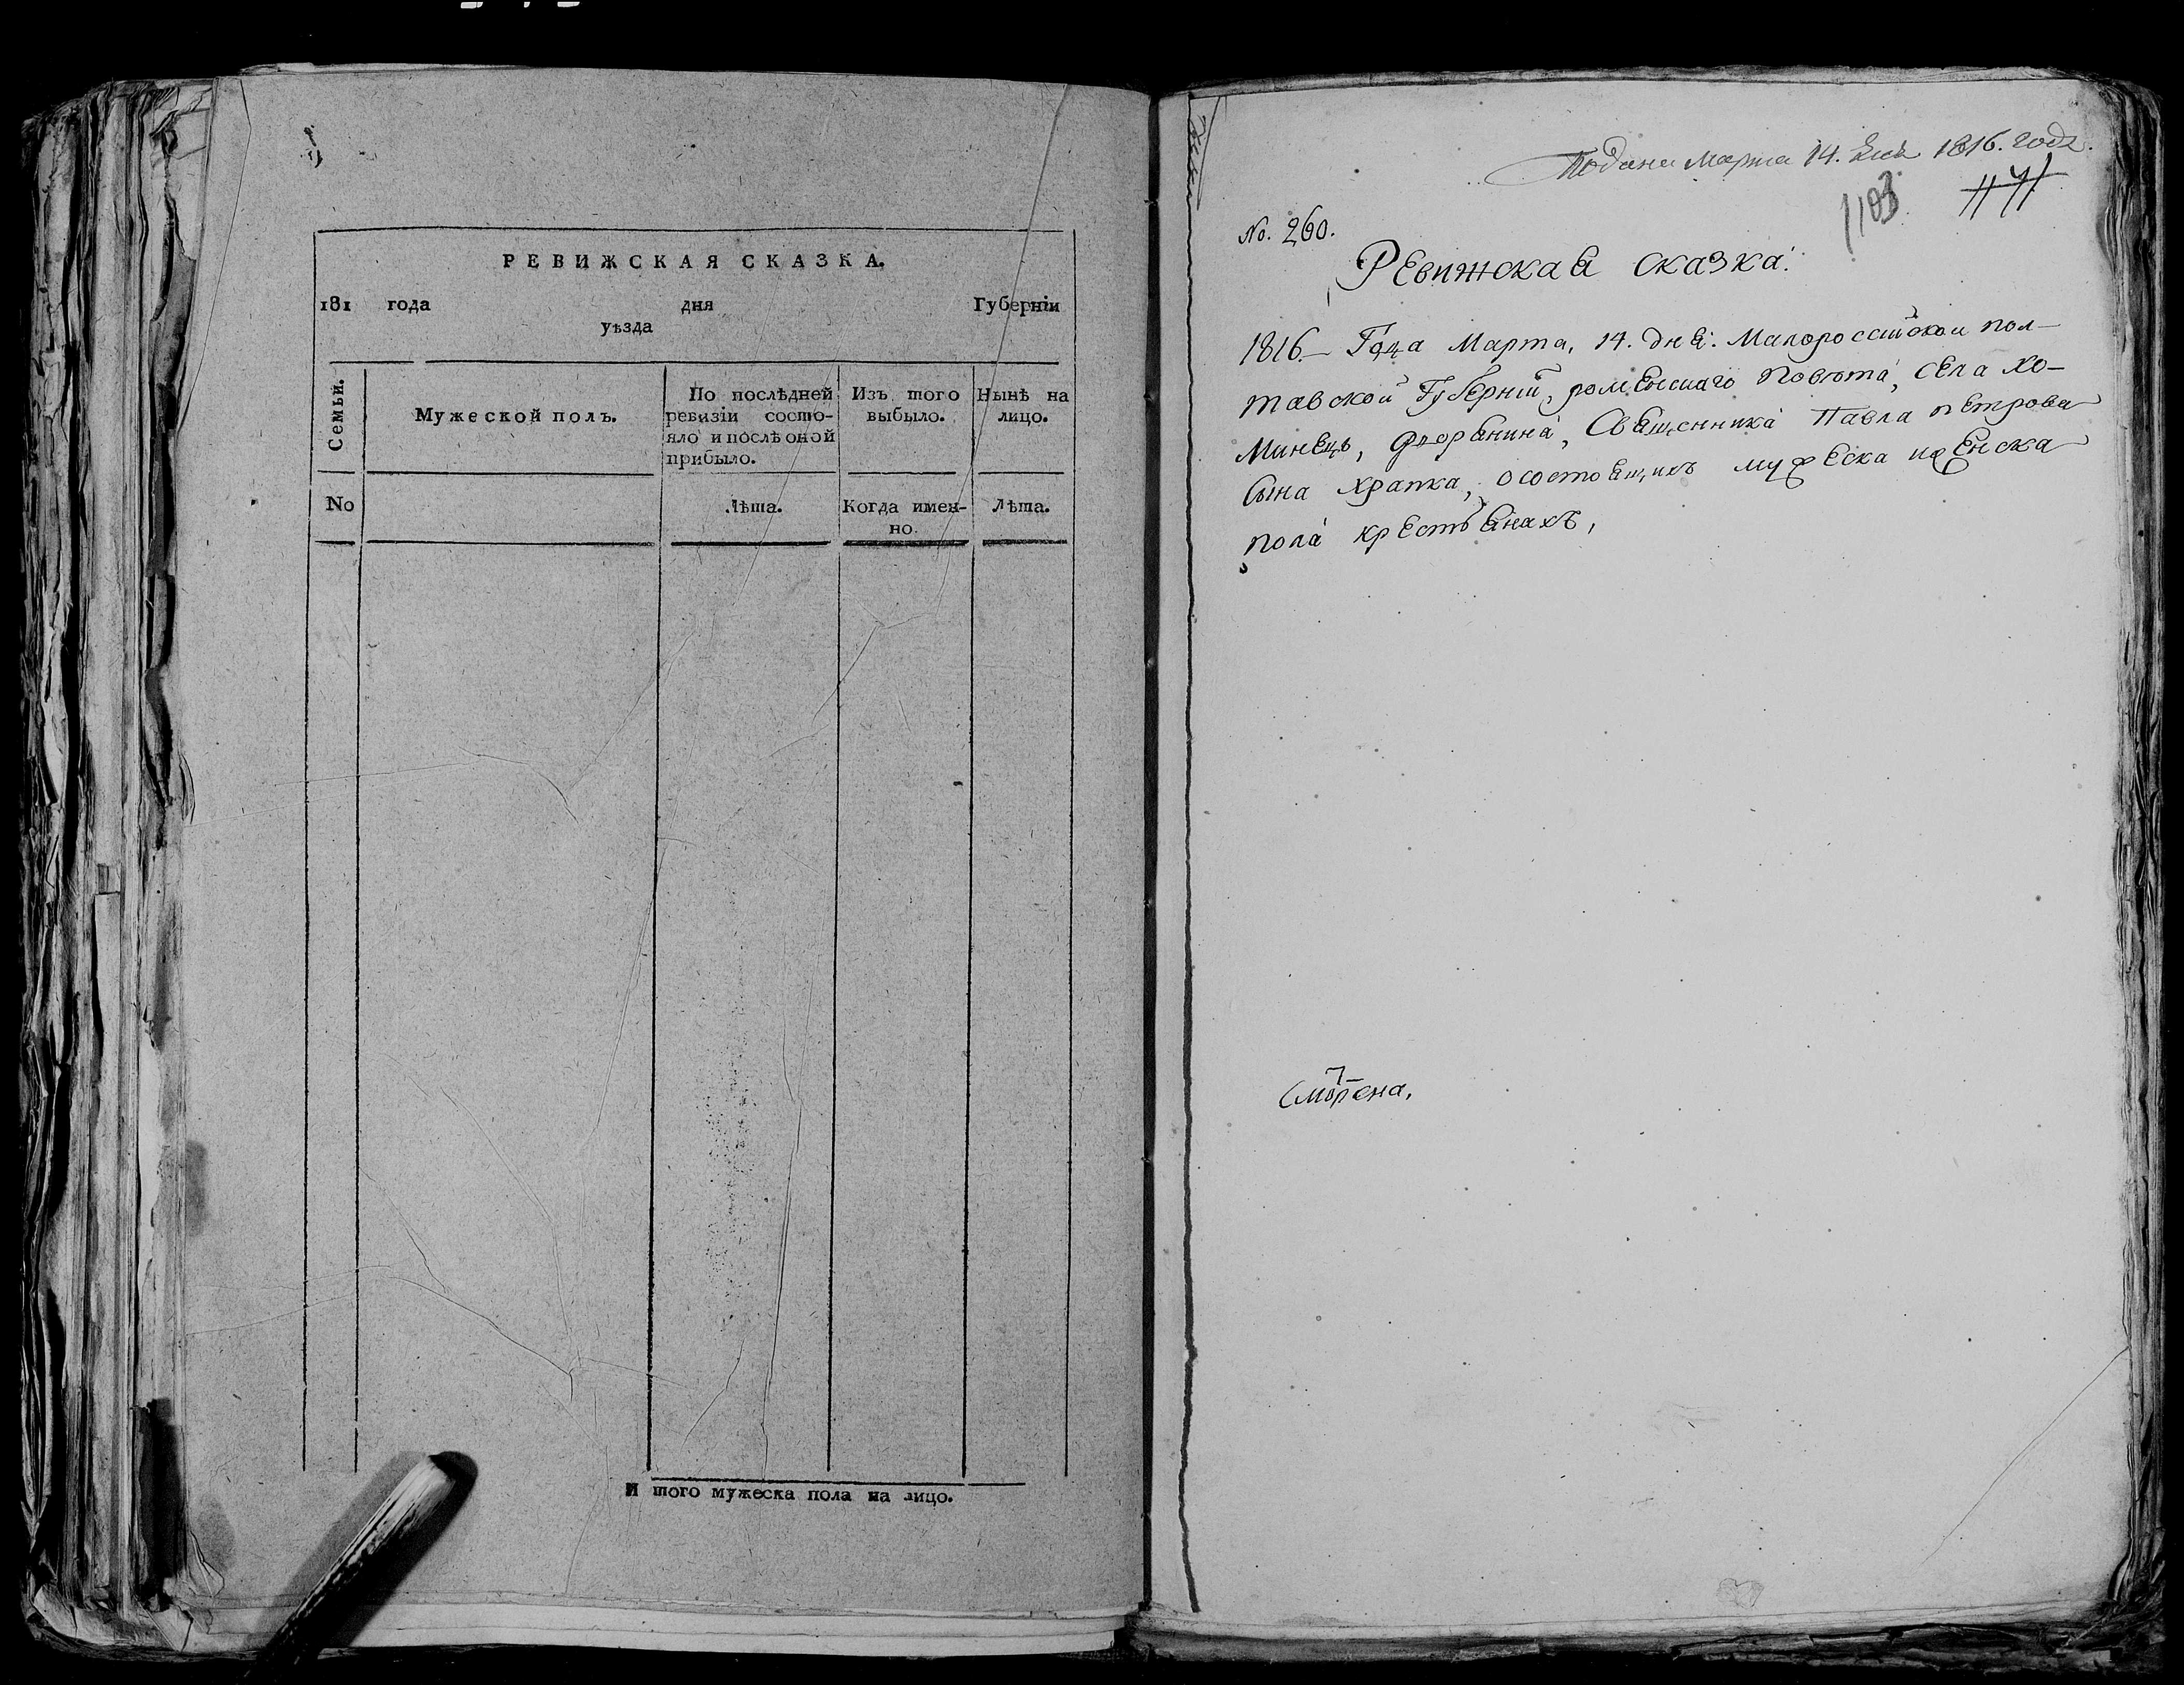 РЕВИЖСКАЯ СКАЗКА.
181 года дня Губерніи
уѣзда
Семьи.
Мужеской полъ.
По послѣдней
ревизіи состо-
яло и послѣ оной
прибыло.
Изъ того
выбыло.
Нынѣ на
лицо.
No
Лѣта.
Когда имен-
но.
Лѣта.
И того мужеска пола на лицо.
Подана Марта 14. дня 1816. года.
1103.
No. 260.
Ревижская сказка.
1816- Года Марта, 14. дня. Малороссійской пол-
тавской Губерніи, роменскаго Повѣта, села хо-
минецъ, дворянина, Священника Павла петрова
сына храпка, осостоящихъ мужеска иженска
пола крестьянахъ,